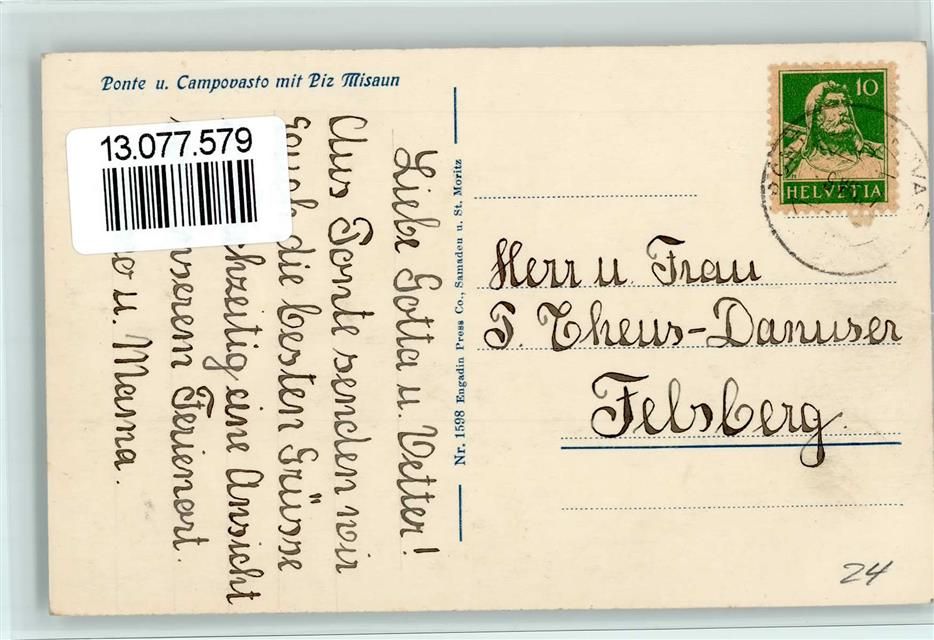 Ponte u. Campovasto mit Piz Misaun
13.077.579
Liebe Gotta u. Vetter!
Aus Ponte senden wir
Euch die besten Grüsse
chzeitig eine Ansicht
nserem Ferienort.
o u. Mamma.
Nr. 1598 Engadin Press Co., Samaden u. St. Moritz
10
HELVETIA
Herr u. Frau
P. Theus-Danuser
Felsberg.
24